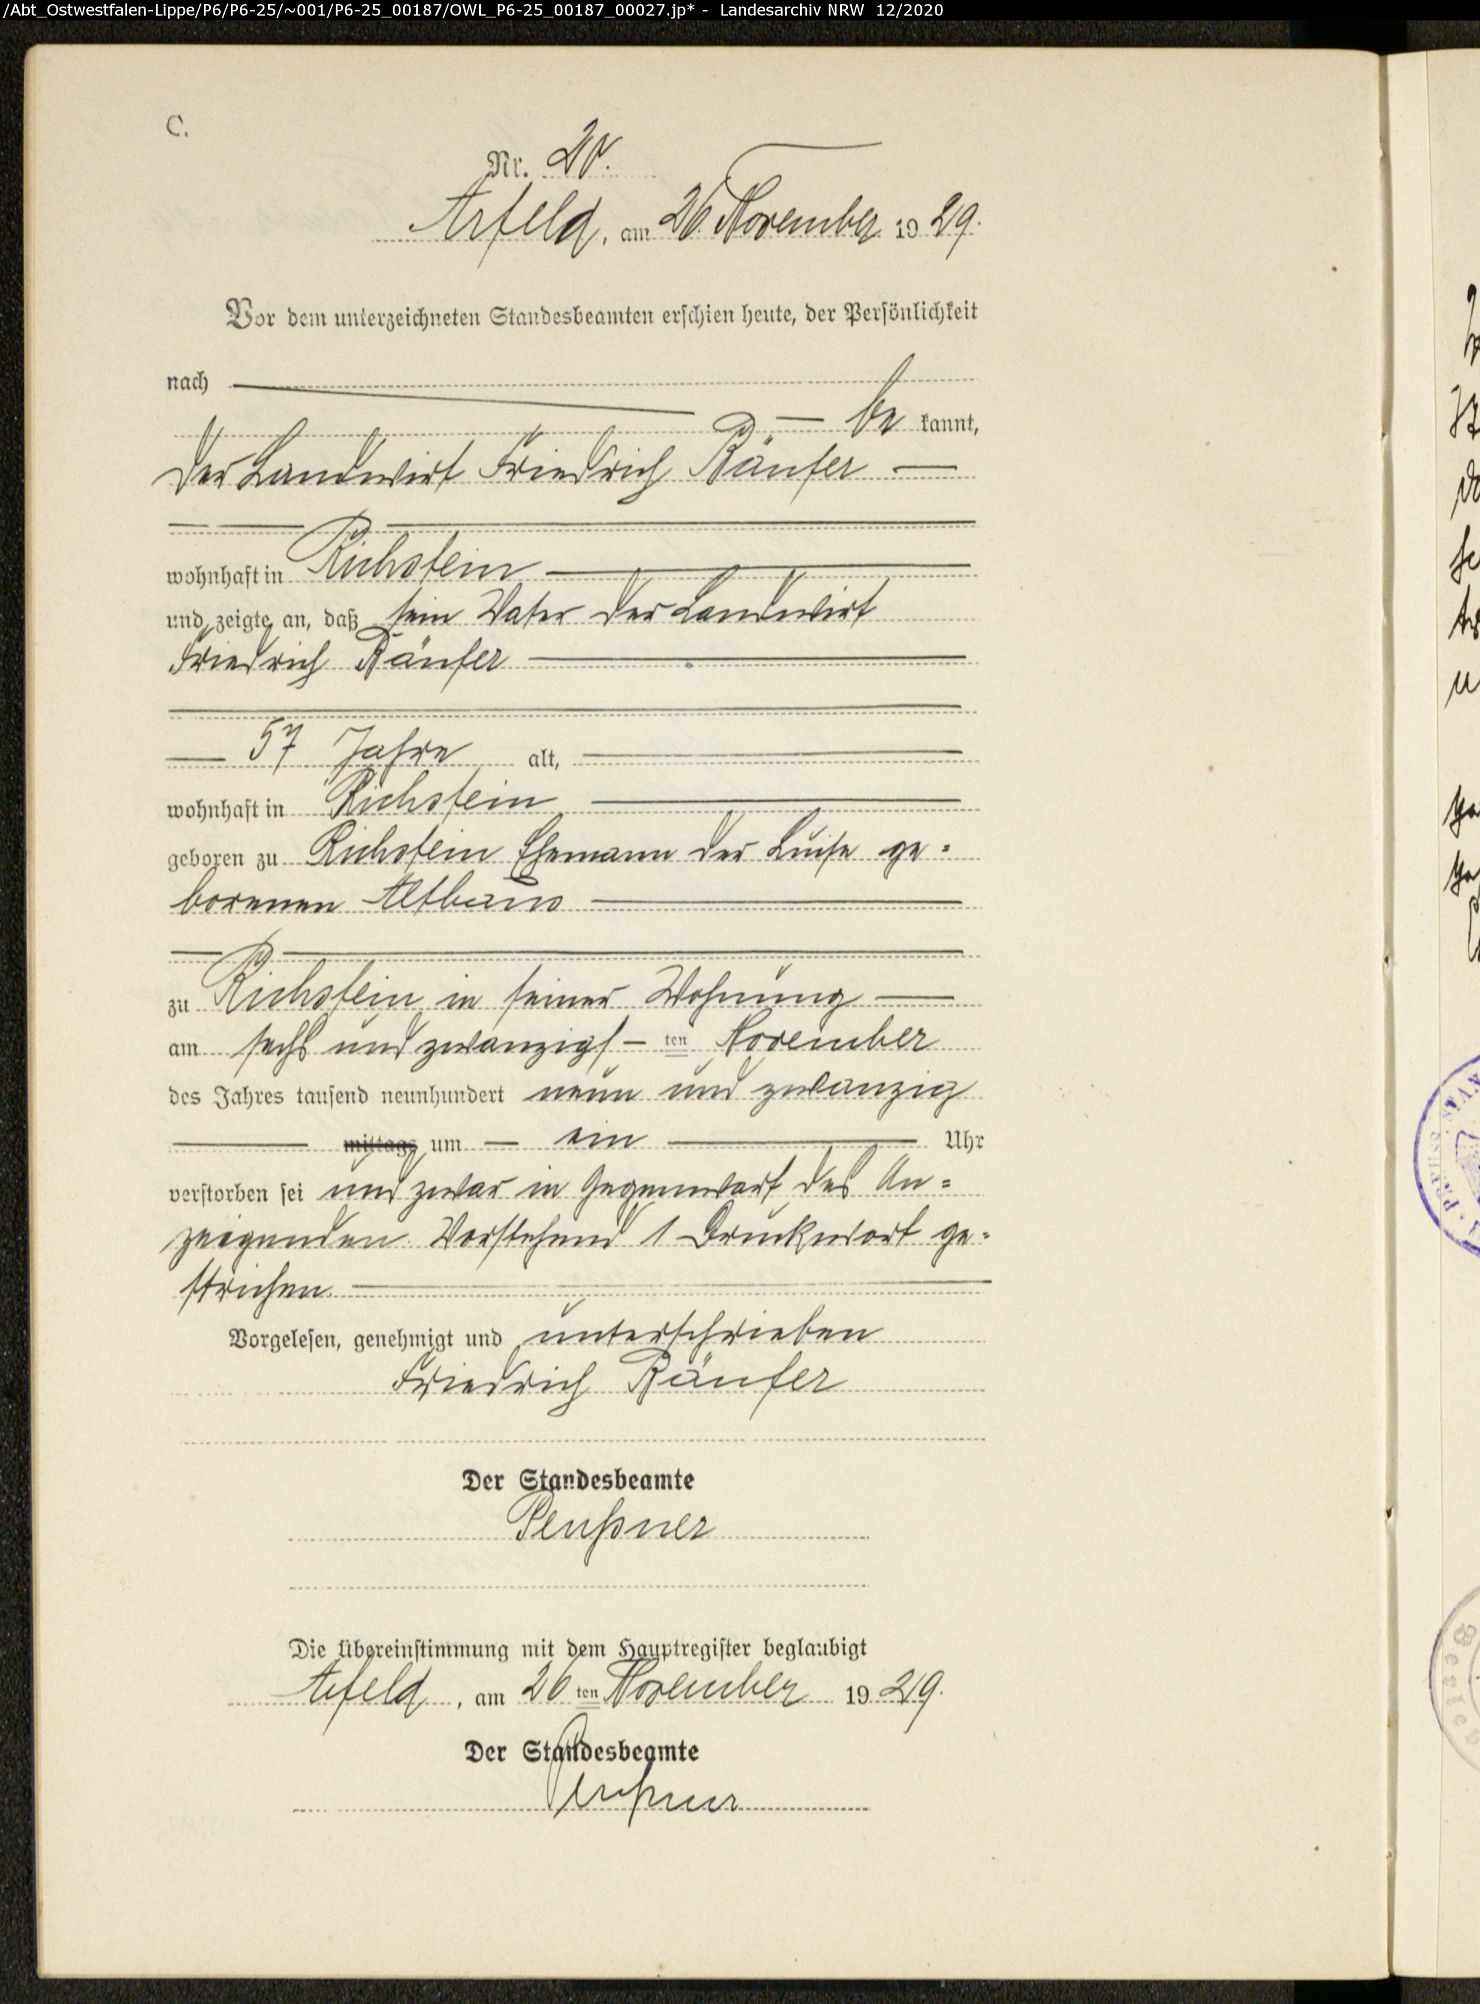 /Abt_Ostwestfalen-Lippe/P6/P6-25/~001/P6-25_00187/OWL_P6-25_00187_00027.jp* - Landesarchiv NRW 12/2020
C.
Nr. 20.
Arfeld, am 26. November 1929.
Vor dem unterzeichneten Standesbeamten erschien heute, der Persönlichkeit
nach
be kannt,
der Landwirt Friedrich Bäufer
wohnhaft in Richstein
und zeigte an, daß sein Vater der Landwirt
Friedrich Bäufer
57 Jahre alt,
wohnhaft in Richstein
geboren zu Richstein Ehemann der Luise ge-
borenen Althaus
zu Richstein in seiner Wohnung
am sechs und zwanzigs-ten November
des Jahres tausend neunhundert neun und zwanzig
mittags um ein Uhr
verstorben sei und zwar in Gegenwart des An-
zeigenden. Vorstehend 1 Druckwort ge-
strichen.
Vorgelesen, genehmigt und unterschrieben
Friedrich Bäufer
Der Standesbeamte
Die Übereinstimmung mit dem Hauptregister beglaubigt
Arfeld, am 26ten November 1929.
Der Standesbeamte